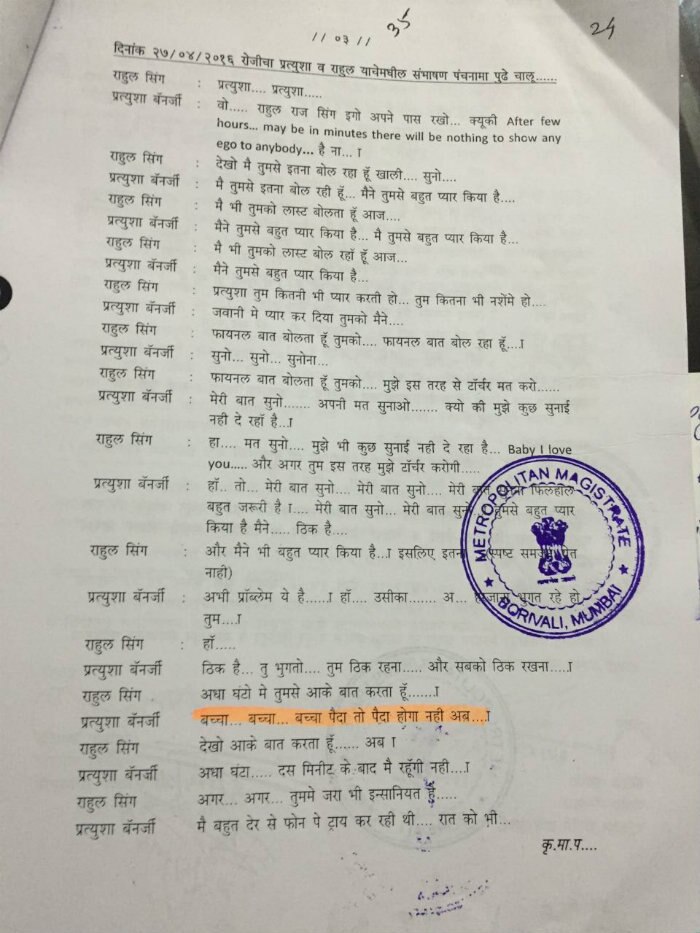 // ०३ //
35
24
दिनांक २७/०४/२०१६ रोजीचा प्रत्युशा व राहुल याचेमधील संभाषण पंचनामा पुढे चालू......
राहुल सिंग : प्रत्युशा.... प्रत्युशा.....
प्रत्युशा बॅनर्जी : वो..... राहुल राज सिंग इगो अपने पास रखो... क्यूकी After few
hours... may be in minutes there will be nothing to show any
ego to anybody... है ना... ।
राहुल सिंग : देखो मै तुमसे इतना बोल रहा हूँ खाली.... सुनो....
प्रत्युशा बॅनर्जी : मै तुमसे इतना बोल रही हूँ... मैने तुमसे बहुत प्यार किया है....
राहुल सिंग : मै भी तुमको लास्ट बोलता हूँ आज....
प्रत्युशा बॅनर्जी : मैने तुमसे बहुत प्यार किया है... मै तुमसे बहुत प्यार किया है...
राहुल सिंग : मै भी तुमको लास्ट बोल रहाँ हूँ आज...
प्रत्युशा बॅनर्जी : मैने तुमसे बहुत प्यार किया है...
राहुल सिंग : प्रत्युशा तुम कितनी भी प्यार करती हो... तुम कितना भी नशेमे हो....
प्रत्युशा बॅनर्जी : जवानी मे प्यार कर दिया तुमको मैने....
राहुल सिंग : फायनल बात बोलता हूँ तुमको.... फायनल बात बोल रहा हूँ....।
प्रत्युशा बॅनर्जी : सुनो... सुनो... सुनोना...
राहुल सिंग : फायनल बात बोलता हूँ तुमको.... मुझे इस तरह से टॉर्चर मत करो......
प्रत्युशा बॅनर्जी : मेरी बात सुनो....... अपनी मत सुनाओ....... क्यो की मुझे कुछ सुनाई
नही दे रहाँ है...।
राहुल सिंग : हा.... मत सुनो.... मुझे भी कुछ सुनाई नही दे रहा है... Baby I love
you..... और अगर तुम इस तरह मुझे टॉर्चर करोगी.....
प्रत्युशा बॅनर्जी : हाँ.. तो... मेरी बात सुनो.... मेरी बात सुनो.... मेरी बात फिलहाल
बहुत जरूरी है ।.... मेरी बात सुनो... मेरी बात तुमसे बहुत प्यार
किया है मैने..... ठिक है....
राहुल सिंग : और मैने भी बहुत प्यार किया है...। इसलिए
नाही)
प्रत्युशा बॅनर्जी : अभी प्रॉब्लेम ये है......। हाँ.... उसीका....... अ... भुगत रहे हो
तुम....।
राहुल सिंग : हाँ.....
प्रत्युशा बॅनर्जी : ठिक है... तु भुगतो.... तुम ठिक रहना..... और सबको ठिक रखना....।
राहुल सिंग : अधा घंटो मे तुमसे आके बात करता हूँ.......।
प्रत्युशा बॅनर्जी : बच्चा... बच्चा... बच्चा पैदा तो पैदा होगा नही अब....।
राहुल सिंग : देखो आके बात करता हूँ...... अब ।
प्रत्युशा बॅनर्जी : अधा घंटा..... दस मिनीट के बाद मै रहूँगी नही....।
राहुल सिंग : अगर... अगर... तुममे जरा भी इन्सानियत है.....
प्रत्युशा बॅनर्जी : मै बहुत देर से फोन पे ट्राय कर रही थी.... रात को भी...
कृ.मा.प....
METROPOLITAN MAGISTRATE
BORIVALI, MUMBAI